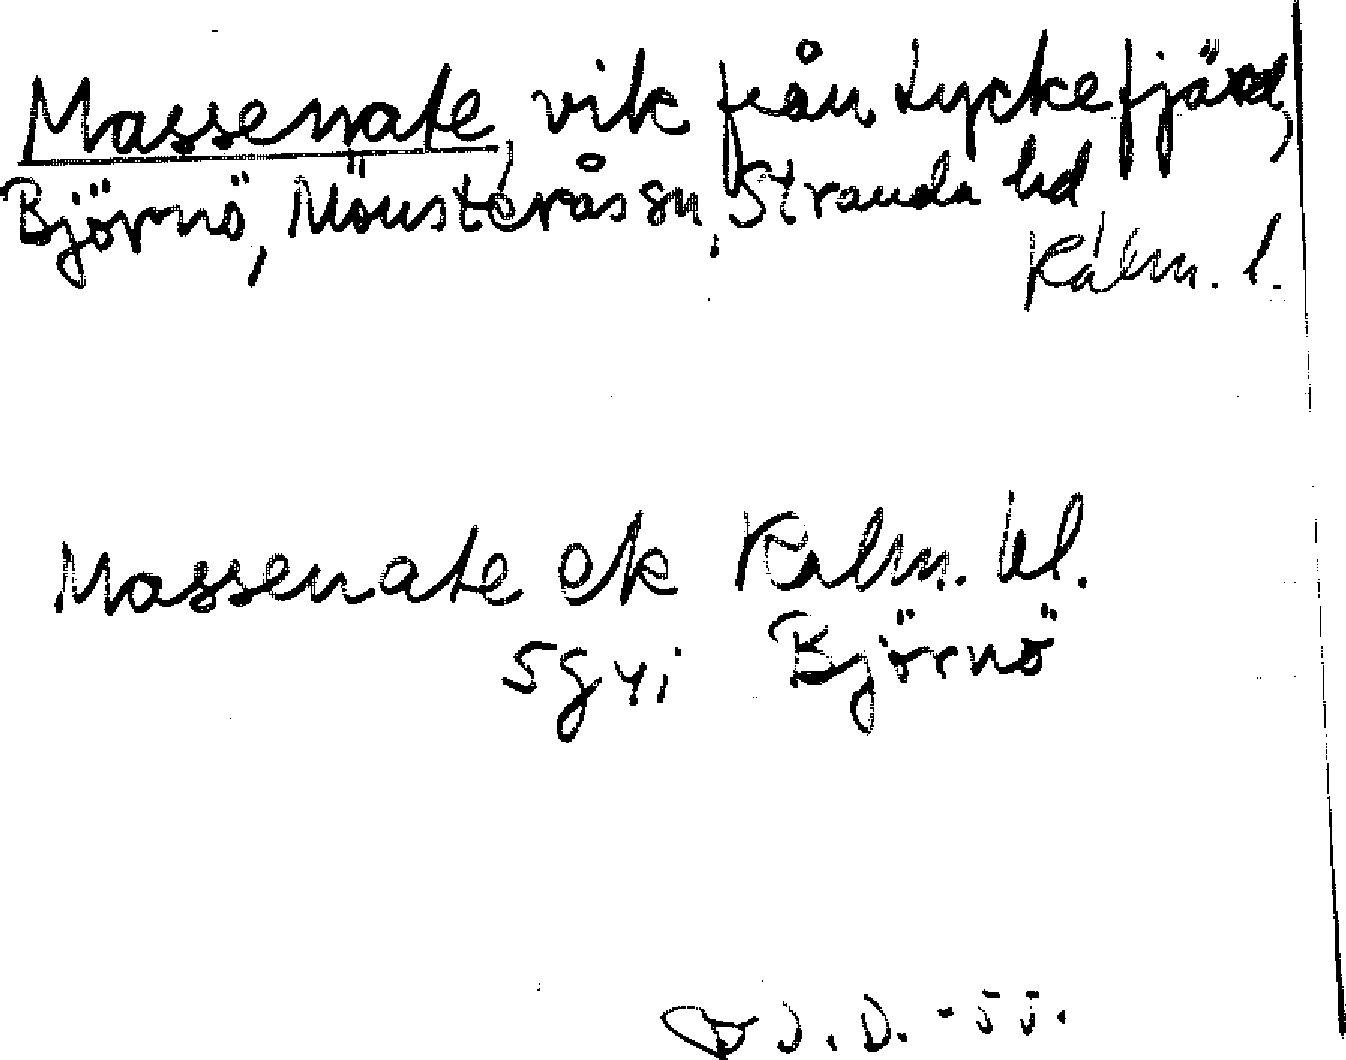 Massenate, vik från Lyckefjärd,
Björnö, Mönsterås sn, Stranda hd
Kalm. l.
Massenate ek Kalm. bl.
5g4i Björnö
J. D. - 55.